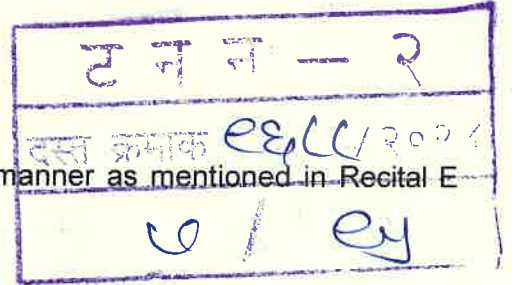 ट न न — २
दस्त क्रमांक ९६८८/
manner as mentioned in Recital E
७ / ९५